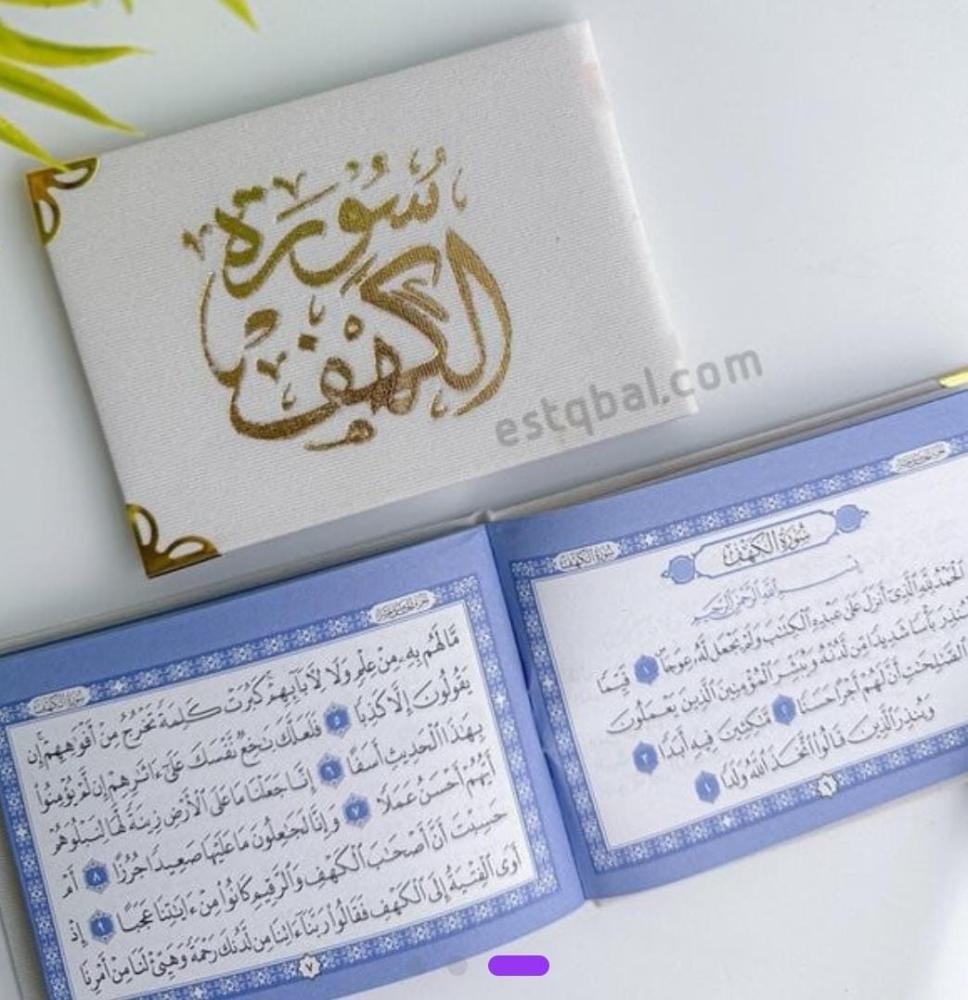 سُورَة
الكهف
estqbal.com
سُورَةُ الكَهْفِ
سُورَةُ الْكَهْفِ
بِسْمِ اللَّهِ الرَّحْمَٰنِ الرَّحِيمِ
الْحَمْدُ لِلَّهِ الَّذِي أَنزَلَ عَلَىٰ عَبْدِهِ الْكِتَٰبَ وَلَمْ يَجْعَل لَّهُ عِوَجًا ١ قَيِّمًا
لِّيُنذِرَ بَأْسًا شَدِيدًا مِّن لَّدُنْهُ وَيُبَشِّرَ الْمُؤْمِنِينَ الَّذِينَ يَعْمَلُونَ
الصَّٰلِحَٰتِ أَنَّ لَهُمْ أَجْرًا حَسَنًا ٢ مَّٰكِثِينَ فِيهِ أَبَدًا ٣
وَيُنذِرَ الَّذِينَ قَالُوا اتَّخَذَ اللَّهُ وَلَدًا ٤
٦
سُورَةُ الكَهْفِ
مَّا لَهُم بِهِ مِنْ عِلْمٍ وَلَا لِآبَائِهِمْ كَبُرَتْ كَلِمَةً تَخْرُجُ مِنْ أَفْوَٰهِهِمْ إِن
يَقُولُونَ إِلَّا كَذِبًا ٥ فَلَعَلَّكَ بَٰخِعٌ نَّفْسَكَ عَلَىٰ ءَاثَٰرِهِمْ إِن لَّمْ يُؤْمِنُوا
بِهَٰذَا الْحَدِيثِ أَسَفًا ٦ إِنَّا جَعَلْنَا مَا عَلَى الْأَرْضِ زِينَةً لَّهَا لِنَبْلُوَهُمْ
أَيُّهُمْ أَحْسَنُ عَمَلًا ٧ وَإِنَّا لَجَٰعِلُونَ مَا عَلَيْهَا صَعِيدًا جُرُزًا ٨ أَمْ
حَسِبْتَ أَنَّ أَصْحَٰبَ الْكَهْفِ وَالرَّقِيمِ كَانُوا مِنْ ءَايَٰتِنَا عَجَبًا ٩ إِذْ
أَوَى الْفِتْيَةُ إِلَى الْكَهْفِ فَقَالُوا رَبَّنَا ءَاتِنَا مِن لَّدُنكَ رَحْمَةً وَهَيِّئْ لَنَا مِنْ أَمْرِنَا
٧